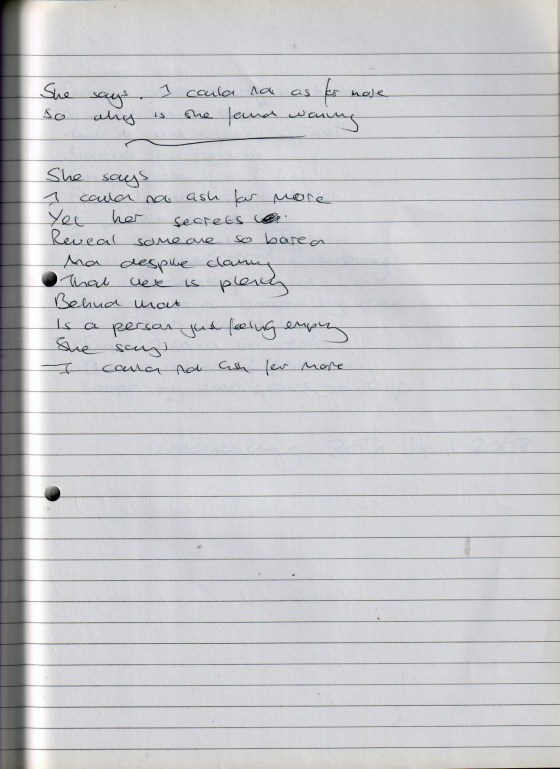 She says. I could not as for more
So why is she found wanting
She says
I could not ask for more
Yet her secrets
Reveal someone so bored
And despite claiming
That there is plenty
Behind that
Is a person just feeling empty
She says
I could not ask for more